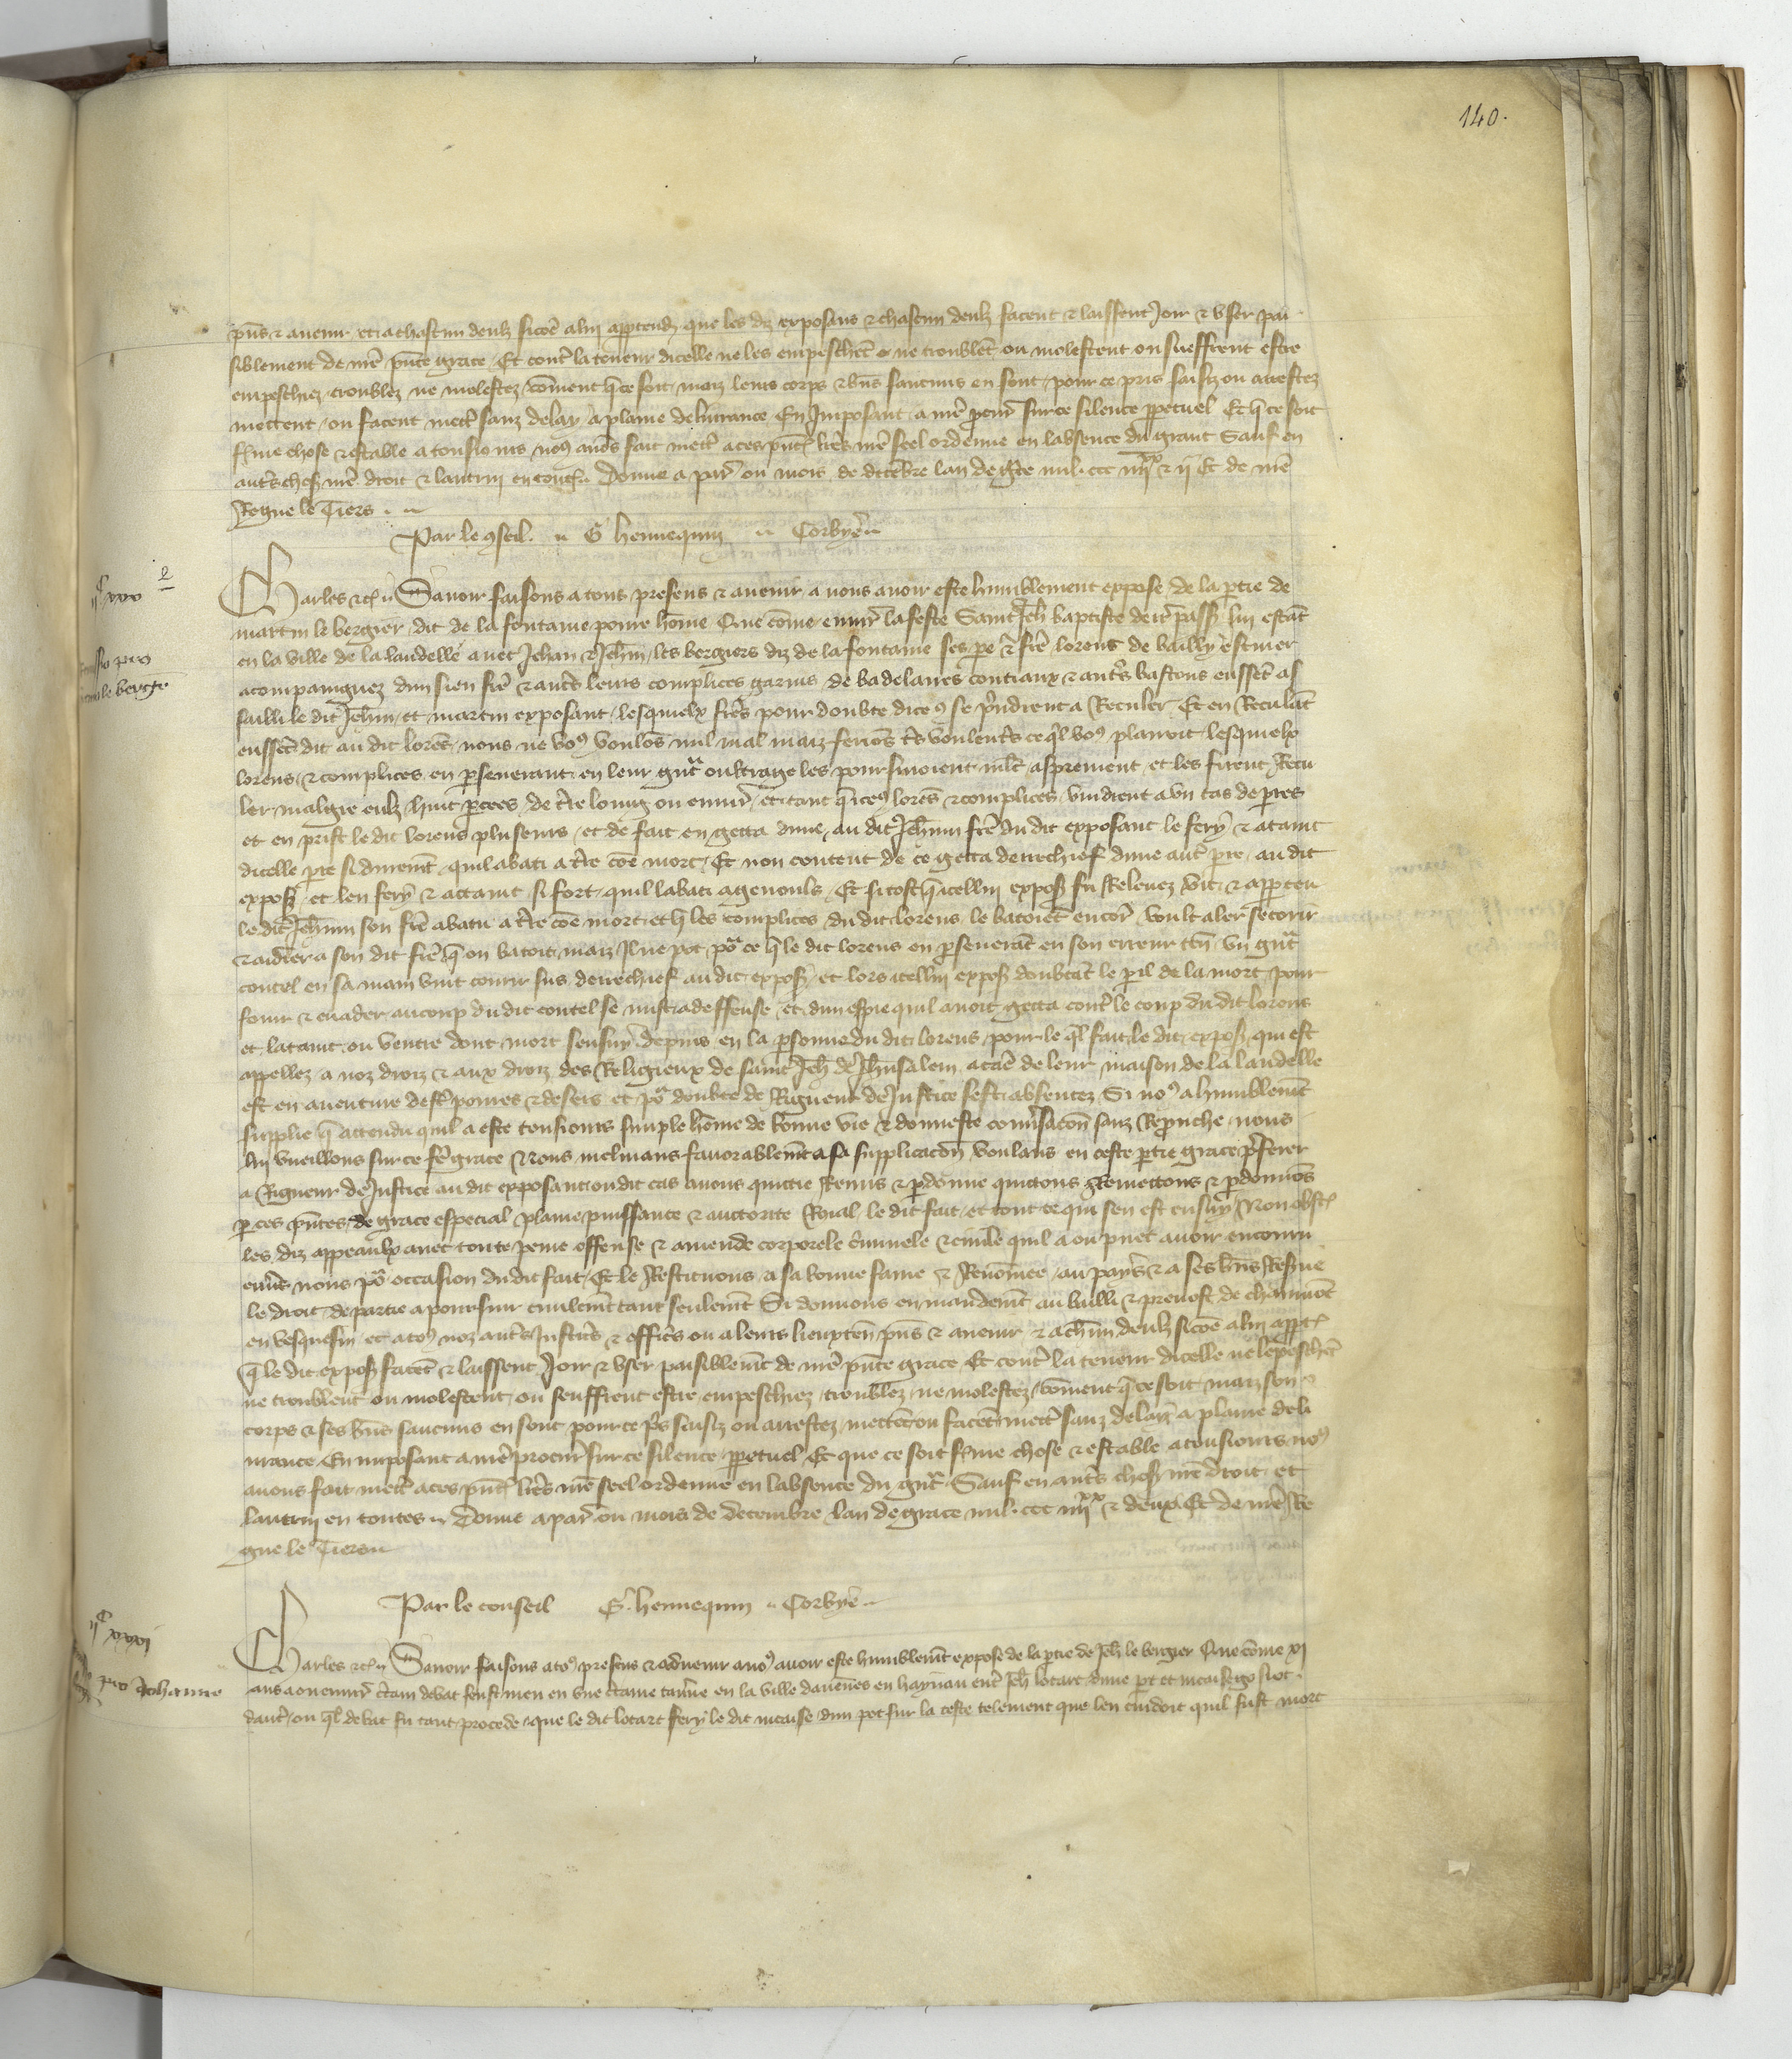 140.
pn̄s & avenir et a chascun deulz sicōe a lui appartendr̄ que les diz exposans & chascun deulz facent & laissent Joir & user pai
siblement de nr̄e pn̄te grace Et contr̄ la teneur dicelle ne les empeschent ne troublēt ou molestent ou sueffrent estre
empeschiez troublez ne molestez cōment q̄ ce soit maiz leurs corps & biēs saucuns en sont pour ce pris saisiz ou arrestez
mettent ou facent mettr̄ sanz delay a plaine delivrance En Imposant a nr̄e procur̄ sur ce silence ppetuel Et q̄ ce soit
ferme chose & estable a tousiours noꝰ avōs fait mettr̄ a ces pn̄tes lr̄es nr̄e seel ordenne en labsence du grant Sauf en
autr̄s choses nr̄e droit & lautrui en toutes Donne a par̄ ou mois de decēbre lan de gr̄ce mil. ccc iiijxx & ij Et de nr̄e
Regne le Tiers
Par le conseil. G hennequin Corbye
ijC xxx
Charles &c Savoir faisons a tous presens & avenir a nous avoir este humblement expose de la partie de
martin le bergier dit de la fontaine povre hōme Que cōme envirō la feste Saint Jeh̄ baptiste derr̄ pass̄ lui estāt
en la ville de la landelle avec Jehan & Jeh̄in les bergiers diz de la fontaine ses pere & frēe lorens de bailly estuier
Remissio pro
martino le bergier
acompaignez dun sien frēe & autr̄s leurs complices garniz de badelaires coutiaux & autr̄s bastons eussēt as
sailli le dit Jeh̄in et martin exposant lesquielx frēs pour doubte diceꝰ se pr̄ndrent a Reculer Et en Reculāt
eussēt dit au dit lorēs nous ne voꝰ voulōs nul mal maiz ferōs tr̄s voulentr̄s ce q̄l voꝰ plairoit lesquielx
lorens & complices en perseverant en leur grāt oultrage les poursuivoient mlt̄ asprement et les firent Recu
ler malgre eulz huit perces de t̄re loing ou envir̄ et tant q̄ iceꝰ lorēs & complices vindrent a un tas de pierres
et en prist le dit lorens plusieurs et de fait en getta dune au dit Jeh̄nin frēe du dit exposant le fery & ataint
dicelle pierre si durement quil abati a t̄re cōe mort Et non content de ce getta derrechief dune autr̄ pierre au dit
expos̄ et len fery & attaint si fort quil labati agenouls Et si tost q̄ icellui expos̄ fu Relevez vit & apperceu
le dit Jeh̄nin son frēe abatu a t̄re cōe mort et q̄ les complices du dit lorens le batoiēt encor̄ voult aler secorir
& aidier a son dit frēe q̄ on batoit maiz Il ne pot pour ce q̄ le dit lorens en perseverāt en son erreur ten̄ un grāt
coutel en sa main vint courir sus derrechief au dit expos̄ et lors icellui expos̄ doubtāt le peril de la mort pour
fouir & evader au coup du dit coutel se mist a deffense et dun espie quil avoit getta contr̄ le coup du dit lorens
et lataint ou ventre dont mort sensuy depuis en la personne du dit lorens pour le q̄l fait le dit expos̄ qui est
appellez a noz droiz & aux droiz des Religieux de Saint Jeh̄ de Jherusalem a cāe de leur maison de la landelle
est en aventure destr̄ povres & desers et por doubte de Rigueur de Justice sest absentez Si noꝰ a humblement
supplie q̄ attendu quil a este tousiours simple hōme de bonne vie & donneste conversacion sanz Reprouche nous
lui vueillons sur ce fēr grace Nous inclinans favorablement a sa supplicacōn voulans en ceste partie grace preferer
a Rigueur de Justice au dit exposant ou dit cas avons quictie Remis & pardonne quictons Remettons & pardonnōs
par ces pn̄tes de grace especial plaine puissance & auctorite Roial le dit fait et tout ce qui sen est ensuy Non obst̄
les diz appeaulx avec toute peine offense & amende corporele criminele & civile quil a ou puet avoir encouru
envers nous por occasion du dit fait Et le Restituons a sa bonne fame & Renōmee au pays & a ses biēs Reserve
le droit de partie a poursuir civilement tant seulement Si donnons en mandement au bailli & prevost de chaumōt
en vesquessin et a toꝰ noz autr̄s Justicr̄s & officr̄s ou a leurs lieuxten̄ pn̄s & avenir & a ch̄un deulz sicōe a lui appt̄
q̄ le dit expos̄ facēt & laissent Joir & user paisiblement de nr̄e pn̄te grace Et contr̄ la teneur dicelle ne lepeschēt
ne troublent ou molestent ou seuffrent estre empeschiez troublez ne molestez cōment q̄ ce soit maiz son
corps & ses biēs saucuns en sont pour ce pr̄s saisiz ou arrestez mettēt ou facēt mettr̄ sanz delay a plaine deli
vrance En imposant a nr̄e procur̄ sur ce silence ppetuel Et que ce soit ferme chose & estable a tousiours noꝰ
avons fait mettr̄ a ces pn̄tes lr̄es nr̄e seel ordenne en labsence du grāt Sauf en autr̄s choses nr̄e droit et
lautrui en toutes Donne a par̄ ou mois de decembre lan de grace mil. ccc iiijxx & deux Et de nr̄e Re
gne le Tiers
Par le conseil G. hennequin Corbye
ijC xxxi
Charles &c Savoir faisons a toꝰ presens & advenir a noꝰ avoir este humblement expose de la partie de Jeh̄ le bergier Que cōme xi
pro Johanne
ans a ou envir̄ certain debat feust meu en une certaine taverne en la ville davenes en haynau entr̄ Jeh̄ lotart dune part et nicaise
dautr̄ ou q̄l debat fu tant procede que le dit lotart fery le dit nicaise dun pot sur la teste telement que len cuidoit quil fust mort